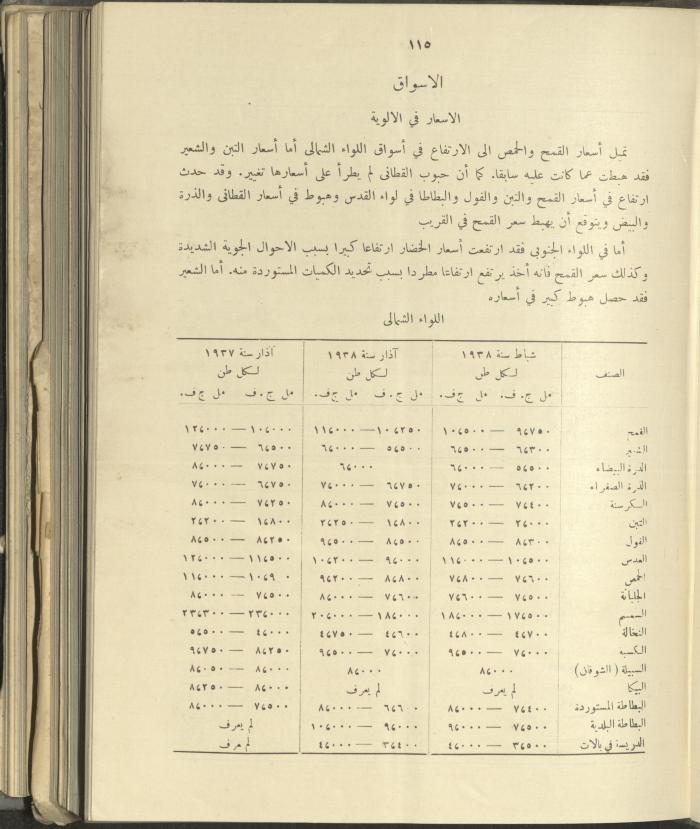 ١١٥
الاسواق
الاسعار في الالوية
تميل أسعار القمح والحمص الى الارتفاع في أسواق اللواء الشمالى أما أسعار التبن والشعير
فقد هبطت عما كانت عليه سابقا. كما أن حبوب القطانى لم يطرأ على أسعارها تغيير. وقد حدث
ارتفاع في أسعار القمح والتبن والفول والبطاطا في لواء القدس وهبوط في أسعار القطانى والذرة
والبيض ويتوقع أن يهبط سعر القمح في القريب
أما في اللواء الجنوبى فقد ارتفعت أسعار الخضار ارتفاعا كبيرا بسبب الاحوال الجوية الشديدة
وكذلك سعر القمح فانه أخذ يرتفع ارتفاعا مطردا بسبب تحديد الكميات المستوردة منه. أما الشعير
فقد حصل هبوط كبير في أسعاره
اللواء الشمالى
الصنف شباط سنة ١٩٣٨ آذار سنة ١٩٣٨ آذار سنة ١٩٣٧
لكل طن لكل طن لكل طن
مل ج. ف. مل ج. ف. مل ج. ف مل ج. ف. مل ج. ف مل ج. ف.
القمح ٩٬٧٥٠ — ١٠٬٥٠٠ ١٠٬٢٥٠ — ١١٬٠٠٠ ١٠٬٠٠٠ — ١٢٬٠٠٠
الشعير ٦٬٣٠٠ — ٦٬٥٠٠ ٥٬٥٠٠ — ٦٬٠٠٠ ٦٬٥٠٠ — ٧٬٧٥٠
الذرة البيضاء ٥٬٥٠٠ — ٦٬٠٠٠ ٦٬٠٠٠ ٧٬٧٥٠ — ٨٬٠٠٠
الذرة الصفراء ٦٬٢٠٠ — ٧٬٠٠٠ ٦٬٧٥٠ — ٧٬٠٠٠ ٦٬٧٥٠ — ٧٬٠٠٠
الكرسنة ٧٬٤٠٠ — ٧٬٥٠٠ ٧٬٥٠٠ — ٨٬٠٠٠ ٧٬٢٥٠ — ٨٬٠٠٠
التبن ٢٬٠٠٠ — ٢٬٢٠٠ ١٬٨٠٠ — ٢٬٢٥٠ ١٬٨٠٠ — ٢٬٢٠٠
الفول ٨٬٣٠٠ — ٨٬٥٠٠ ٨٬٥٠٠ — ٩٬٥٠٠ ٨٬٢٥٠ — ٨٬٥٠٠
العدس ١٠٬٥٠٠ — ١١٬٠٠٠ ٩٬٠٠٠ — ١٠٬٢٠٠ ١١٬٥٠٠ — ١٢٬٠٠٠
الحمص ٧٬٦٠٠ — ٧٬٨٠٠ ٨٬٨٠٠ — ٩٬٢٠٠ — ١١٬٠٠٠
الجلبانة ٧٬٥٠٠ — ٧٬٦٠٠ ٧٬٦٠٠ — ٨٬٠٠٠ ٧٬٥٠٠ — ٨٬٠٠٠
السمسم ١٧٬٥٠٠ — ١٨٬٠٠٠ ١٨٬٠٠٠ — ٢٠٬٠٠٠ ٢٣٬٠٠٠ — ٢٣٬٣٠٠
النخالة ٤٬٧٠٠ — ٤٬٨٠٠ ٤٬٦٠٠ — ٤٬٧٥٠ ٤٬٠٠٠ — ٥٬٥٠٠
الكسبه ٧٬٠٠٠ — ٩٬٥٠٠ ٧٬٠٠٠ — ٩٬٥٠٠ ٨٬٢٥٠ — ٩٬٧٥٠
السبيلة (الشوفان) ٨٬٠٠٠ ٨٬٠٠٠ ٨٬٠٠٠ — ٨٬٠٥٠
البيكا لم يعرف لم يعرف ٨٬٠٠٠ — ٨٬٢٥٠
البطاطة المستوردة ٧٬٤٠٠ — ٨٬٠٠٠ — ٨٬٠٠٠ ٧٬٥٠٠ — ٨٬٠٠٠
البطاطة البلدية ٧٬٥٠٠ — ٩٬٠٠٠ ٩٬٠٠٠ — ١٠٬٠٠٠ لم يعرف
الدريسة في بالات ٣٬٥٠٠ — ٤٬٠٠٠ ٣٬٤٠٠ — ٤٬٠٠٠ لم يعرف